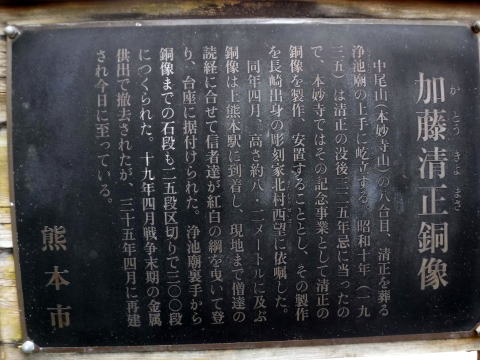 加藤清正銅像
かとうきよまさ
中尾山(本妙寺山)の八合目、清正を葬る
浄池廟の上手に屹立する。昭和十年(一九
三五)は清正の没後三二五年忌に当ったの
で、本妙寺ではその記念事業として清正の
銅像を製作、安置することとし、その製作
を長崎出身の彫刻家北村西望に依嘱した。
同年四月、高さ約八・二メートルに及ぶ
銅像は上熊本駅に到着し、現地まで僧達の
読経に合せて信者達が紅白の綱を曳いて登
り、台座に据付けられた。浄池廟裏手から
銅像までの石段も二五段区切りで三〇〇段
につくられた。十九年四月戦争末期の金属
供出で撤去されたが、三十五年四月に再建
され今日に至っている。
熊本市